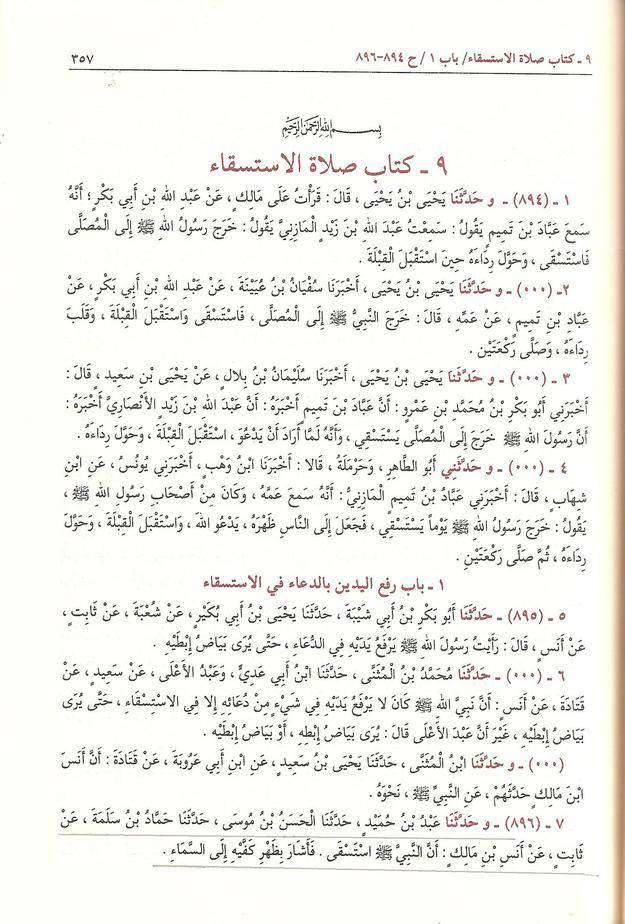 ٩ ـ كتاب صلاة الاستسقاء/ باب ١ / ح ٨٩٤-٨٩٦ ٣٥٧
بسم الله الرحمن الرحيم
٩ ـ كتاب صلاة الاستسقاء
١ ـ (٨٩٤) ـ و حَدَّثَنَا يَحْيَى بْنُ يَحْيَى ، قَالَ : قَرَأْتُ عَلَى مَالِكٍ، عَنْ عَبْدِ اللهِ بْنِ أَبِي بَكْرٍ ؛ أَنَّهُ
سَمِعَ عَبَّادَ بْنَ تَمِيمٍ يَقُولُ : سَمِعْتُ عَبْدَ اللهِ بْنَ زَيْدٍ الْمَازِنِيَّ يَقُولُ : خَرَجَ رَسُولُ اللهِ ﷺ إِلَى الْمُصَلَّى
فَاسْتَسْقَى ، وَحَوَّلَ رِدَاءَهُ حِينَ اسْتَقْبَلَ الْقِبْلَةَ .
٢ـ (٠٠٠) ـ و حَدَّثَنَا يَحْيَى بْنُ يَحْيَى ، أَخْبَرَنَا سُفْيَانُ بْنُ عُيَيْنَةَ ، عَنْ عَبْدِ اللهِ بْنِ أَبِي بَكْرٍ ، عَنْ
عَبَّادِ بْنِ تَمِيمٍ ، عَنْ عَمِّهِ ، قَالَ : خَرَجَ النَّبِيُّ ﷺ إِلَى الْمُصَلَّى ، فَاسْتَسْقَى وَاسْتَقْبَلَ الْقِبْلَةَ ، وَقَلَبَ
رِدَاءَهُ ، وَصَلَّى رَكْعَتَيْنِ .
٣ ـ (٠٠٠) ـ و حَدَّثَنَا يَحْيَى بْنُ يَحْيَى ، أَخْبَرَنَا سُلَيْمَانُ بْنُ بِلالٍ ، عَنْ يَحْيَى بْنِ سَعِيدٍ ، قَالَ :
أَخْبَرَنِي أَبُو بَكْرِ بْنُ مُحَمَّدِ بْنِ عَمْرٍو : أَنَّ عَبَّادَ بْنَ تَمِيمٍ أَخْبَرَهُ : أَنَّ عَبْدَ اللهِ بْنَ زَيْدٍ الأَنْصَارِيَّ أَخْبَرَهُ :
أَنَّ رَسُولَ اللهِ ﷺ خَرَجَ إِلَى الْمُصَلَّى يَسْتَسْقِي ، وَأَنَّهُ لَمَّا أَرَادَ أَنْ يَدْعُوَ ، اسْتَقْبَلَ الْقِبْلَةَ ، وَحَوَّلَ رِدَاءَهُ .
٤ ـ (٠٠٠) ـ و حَدَّثَنِي أَبُو الطَّاهِرِ ، وَحَرْمَلَةُ ، قَالا : أَخْبَرَنَا ابْنُ وَهْبٍ ، أَخْبَرَنِي يُونُسُ ، عَنِ ابْنِ
شِهَابٍ ، قَالَ : أَخْبَرَنِي عَبَّادُ بْنُ تَمِيمٍ الْمَازِنِيُّ : أَنَّهُ سَمِعَ عَمَّهُ ، وَكَانَ مِنْ أَصْحَابِ رَسُولِ اللهِ ﷺ ،
يَقُولُ : خَرَجَ رَسُولُ اللهِ ﷺ يَوْماً يَسْتَسْقِي ، فَجَعَلَ إِلَى النَّاسِ ظَهْرَهُ ، يَدْعُو اللهَ ، وَاسْتَقْبَلَ الْقِبْلَةَ ، وَحَوَّلَ
رِدَاءَهُ ، ثُمَّ صَلَّى رَكْعَتَيْنِ .
١ ـ باب رفع اليدين بالدعاء في الاستسقاء
٥ ـ (٨٩٥) ـ حَدَّثَنَا أَبُو بَكْرِ بْنُ أَبِي شَيْبَةَ ، حَدَّثَنَا يَحْيَى بْنُ أَبِي بُكَيْرٍ ، عَنْ شُعْبَةَ ، عَنْ ثَابِتٍ ،
عَنْ أَنَسٍ ، قَالَ : رَأَيْتُ رَسُولَ اللهِ ﷺ يَرْفَعُ يَدَيْهِ فِي الدُّعَاءِ ، حَتَّى يُرَى بَيَاضُ إِبْطَيْهِ .
٦ ـ (٠٠٠) ـ حَدَّثَنَا مُحَمَّدُ بْنُ الْمُثَنَّى ، حَدَّثَنَا ابْنُ أَبِي عَدِيٍّ، وَعَبْدُ الأَعْلَى ، عَنْ سَعِيدٍ ، عَنْ
قَتَادَةَ ، عَنْ أَنَسٍ : أَنَّ نَبِيَّ اللهِ ﷺ كَانَ لا يَرْفَعُ يَدَيْهِ فِي شَيْءٍ مِنْ دُعَائِهِ إِلا فِي الاسْتِسْقَاءِ ، حَتَّى يُرَى
بَيَاضُ إِبْطَيْهِ ، غَيْرَ أَنَّ عَبْدَ الأَعْلَى قَالَ : يُرَى بَيَاضُ إِبْطِهِ ، أَوْ بَيَاضُ إِبْطَيْهِ .
(٠٠٠) ـ و حَدَّثَنَا ابْنُ الْمُثَنَّى ، حَدَّثَنَا يَحْيَى بْنُ سَعِيدٍ ، عَنِ ابْنِ أَبِي عَرُوبَةَ ، عَنْ قَتَادَةَ : أَنَّ أَنَسَ
ابْنَ مَالِكٍ حَدَّثَهُمْ ، عَنِ النَّبِيِّ ﷺ ، نَحْوَهُ .
٧ ـ (٨٩٦) ـ و حَدَّثَنَا عَبْدُ بْنُ حُمَيْدٍ، حَدَّثَنَا الْحَسَنُ بْنُ مُوسَى ، حَدَّثَنَا حَمَّادُ بْنُ سَلَمَةَ ، عَنْ
ثَابِتٍ ، عَنْ أَنَسِ بْنِ مَالِكٍ : أَنَّ النَّبِيَّ ﷺ اسْتَسْقَى . فَأَشَارَ بِظَهْرِ كَفَّيْهِ إِلَى السَّمَاءِ .